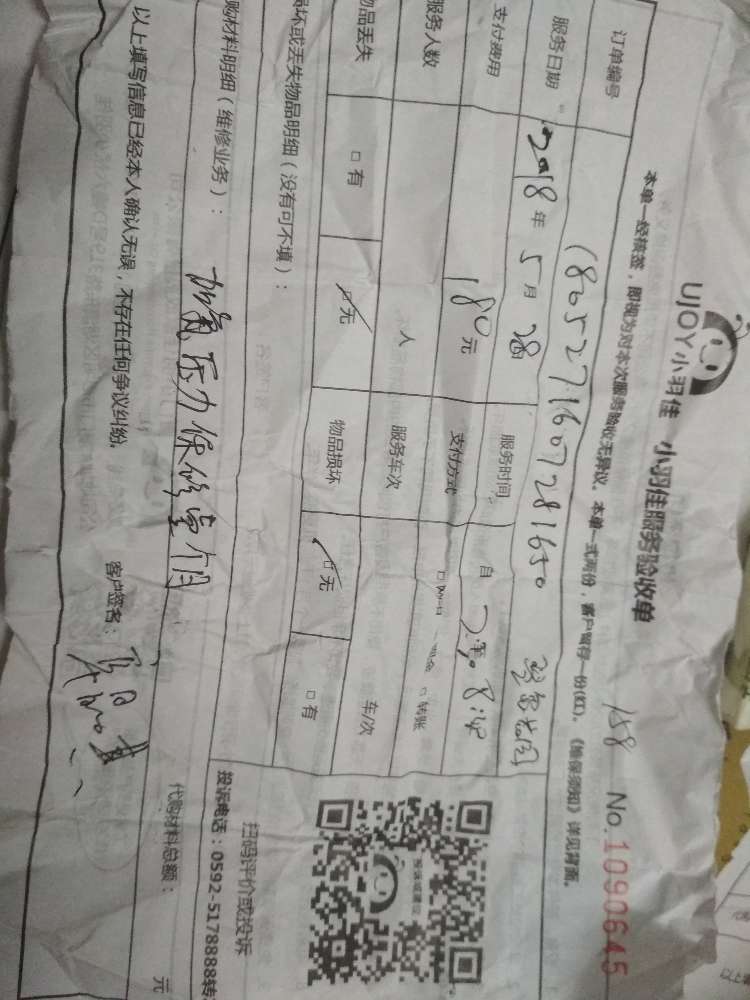 UJOY小羽佳 小羽佳服务验收单
158 No.1090645
本单一经核签,即视为对本次服务验收无异议,本单一式两份,客户留存一份(红)。《维保须知》详见背面。
订单编号 1805271607281650
服务日期 2018年5月28 服务时间 自
支付费用 180元 支付方式 转账
服务人数 人 服务车次 车/次
物品丢失 □有 □无 物品损坏 □无 □有
损坏或丢失物品明细(没有可不填):
购材料明细(维修业务): 加氟压力保修壹个月
代购材料总额: 元
以上填写信息已经本人确认无误,不存在任何争议纠纷。 客户签名:
投诉建议
扫码评价或投诉
投诉电话:0592-5178888转